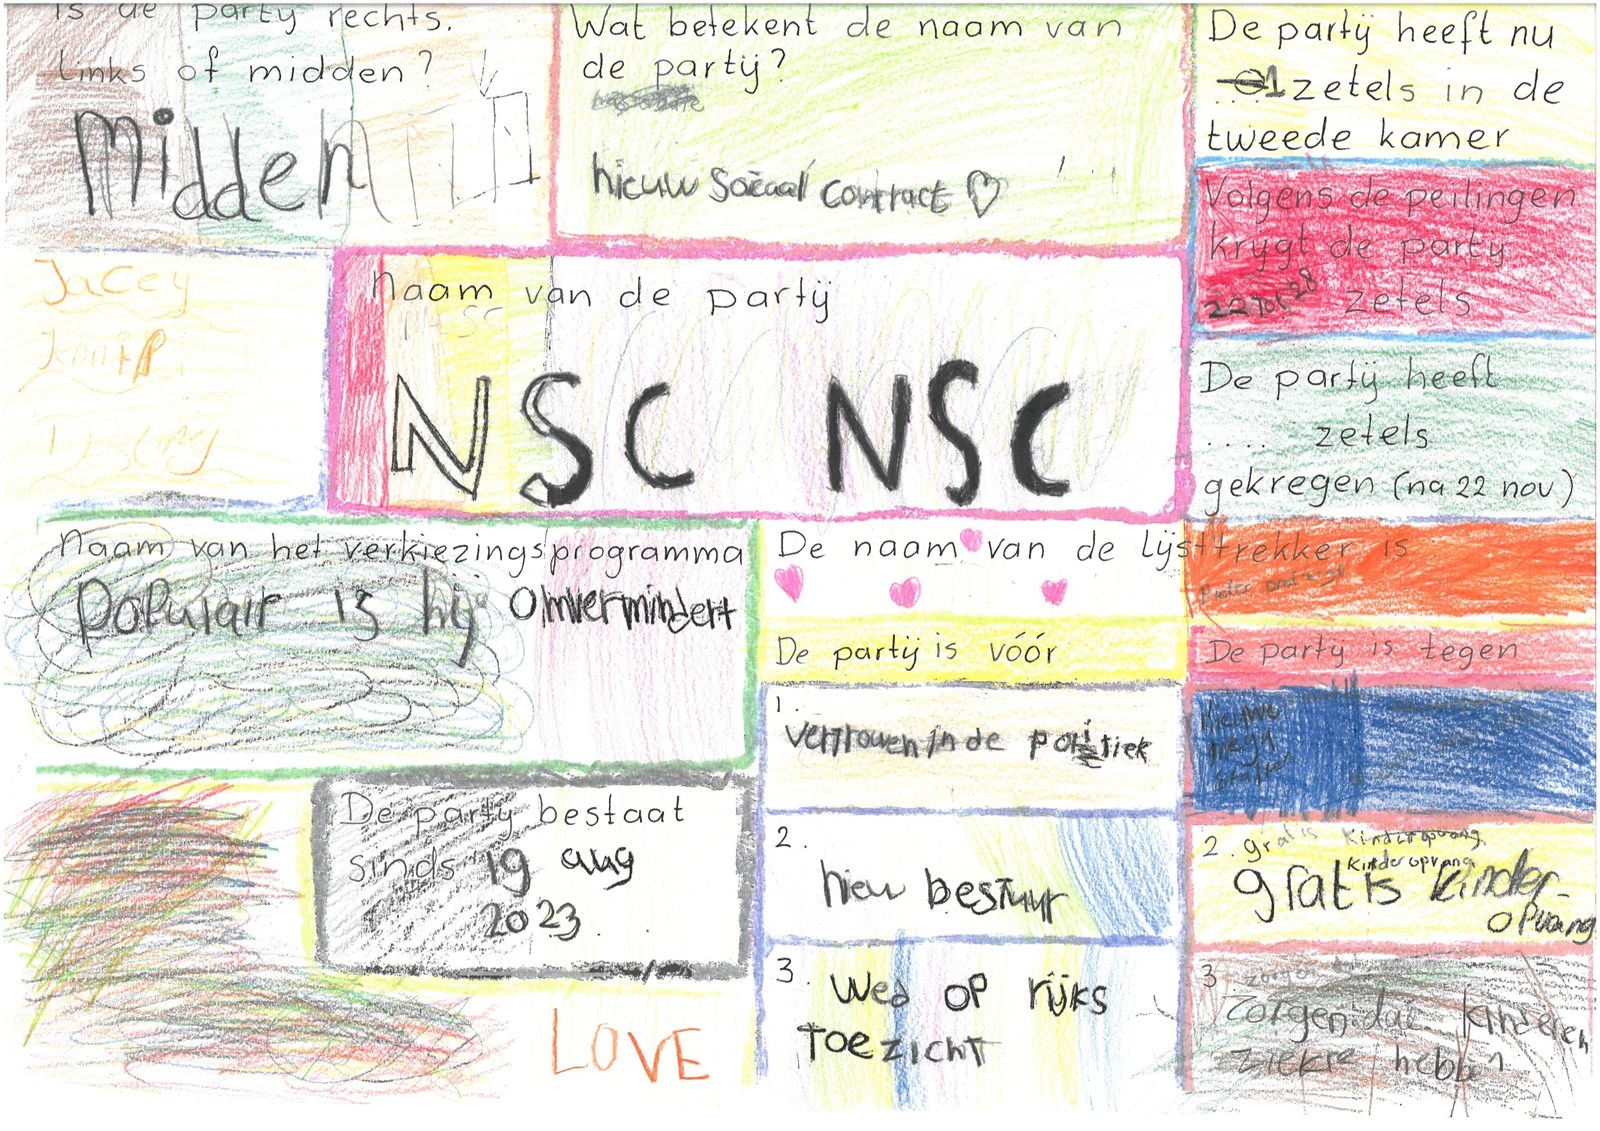 is de partij rechts.
links of midden?
Midden
Wat betekent de naam van
de partij?
nieuw Sociaal contract
De partij heeft nu
1 zetels in de
tweede kamer
Volgens de peilingen
krijgt de partij
22 Tot 28 zetels
De partij heeft
.... zetels
gekregen (na 22 nov)
Jacey
Naam van de partij
NSC NSC
Naam van het verkiezingsprogramma
Populair is hij Omvermindert
De naam van de lijsttrekker is
De partij is vóór
1.
vertrouwen in de politiek
2.
nieu bestuur
3.
wed op rijks
toezicht
De partij is tegen
Nieuwe
2. gratis kinderopvang
kinderopvang
gratis kinder-
opvang
3
zorgen dat kinderen
ziekte hebben
De partij bestaat
sinds 19 aug
2023
LOVE